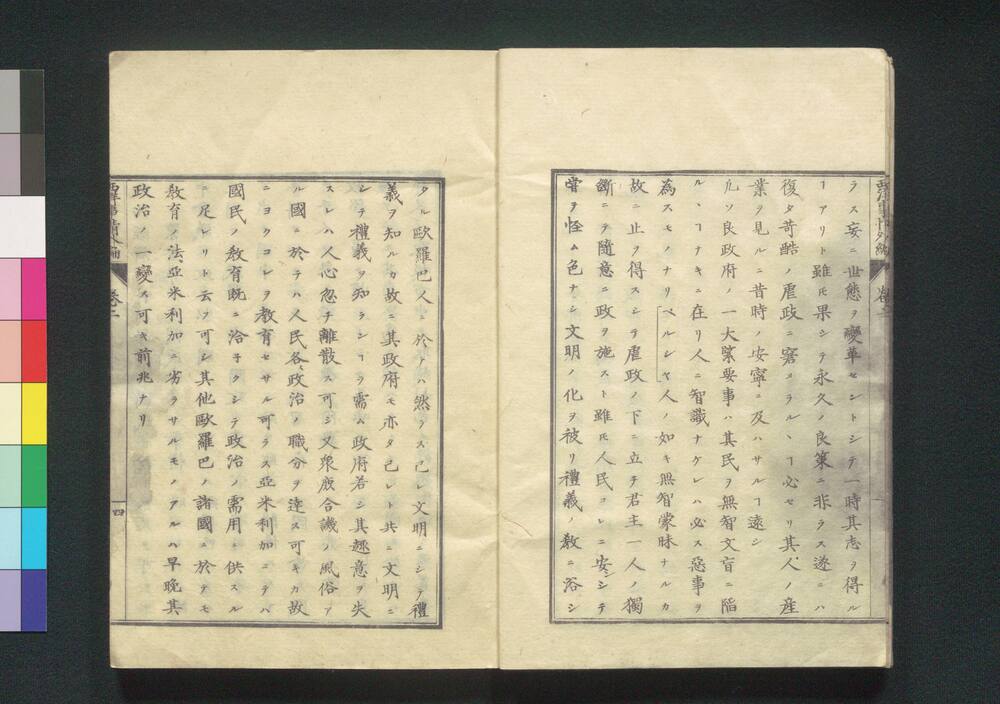 西洋事情外編 巻二
ラス妄ニ世態ヲ變革セントシテ一時其志ヲ得ル
ヿアリト雖𪜈果シテ永久ノ良策ニ非ラス遂ニハ
復タ苛酷ノ虐政ニ窘メラルヽヿ必セリ其人ノ産
業ヲ見ルニ昔時ノ安寧ニ及ハサルヿ遠シ
凡ソ良政府ノ一大緊要事ハ其民ヲ無智文盲ニ陥
ルヽヿナキニ在リ人ニ智識ナケレハ必ス惡事ヲ
為スモノナリペルシヤ人ノ如キ無智蒙昧ナルカ
故ニ止ヲ得スシテ虐政ノ下ニ立チ君主一人ノ獨
斷ニテ隨意ニ政ヲ施スト雖𪜈人民コレニ安シテ
嘗テ怪ム色ナシ文明ノ化ヲ被リ禮義ノ教ニ浴シ
タル歐羅巴人ニ於テハ然ラス己レ文明ニシテ禮
義ヲ知ルカ故ニ其政府モ亦タ己レト共ニ文明ニ
シテ禮義ヲ知ランヿヲ需ム政府若シ其趣意ヲ失
スレハ人心忽チ離散ス可シ又衆庶合議ノ風俗ア
ル國ニ於テハ人民各政治ノ職分ヲ達ス可キカ故
ニヨクコレヲ教育セサル可ラス亞米利加ニテハ
國民ノ教育既ニ洽子クシテ政治ノ需用ニ供スル
ニ足レリト云フ可シ其他歐羅巴ノ諸國ニ於テモ
教育ノ法亞米利加ニ劣ラサルモノアルハ早晩其
政治ノ一變ス可キ前兆ナリ
西洋事情外編 巻二 四